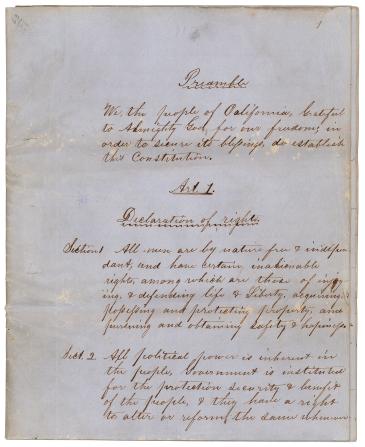 1
Preamble
We, the people of California, Grateful
to Almighty God, for our freedom; in
order to secure its blessings, do establish
this Constitution.
Art 1.
Declaration of rights.
Section 1 All men are by nature free & indepen
dant, and have certain, inalienable
rights, among which are those of enjoy
ing, & defending life & Liberty, acquiring,
possessing and protecting property, and
pursuing and obtaining safety & happiness
Sect. 2 All political power is inherent in
the people, Government is instituted
for the protection security & benefit
of the people, & they have a right
to alter or reform the same whenever